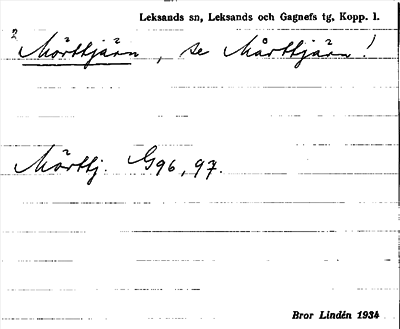 Leksands sn, Leksands och Gagnefs tg, Kopp. l.
2 Mörttjärn, se Mårttjärn!
Mörttj. G96, 97.
Bror Lindén 1934